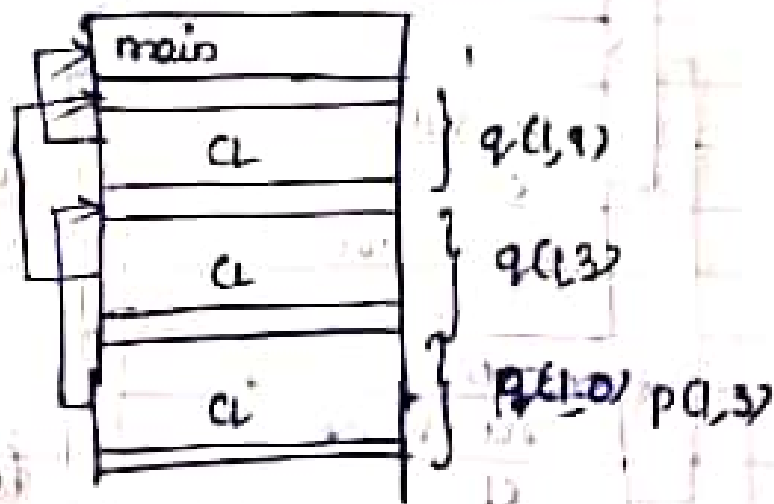 main
CL
q(1,9)
CL
q(1,3)
CL
p(1,3)